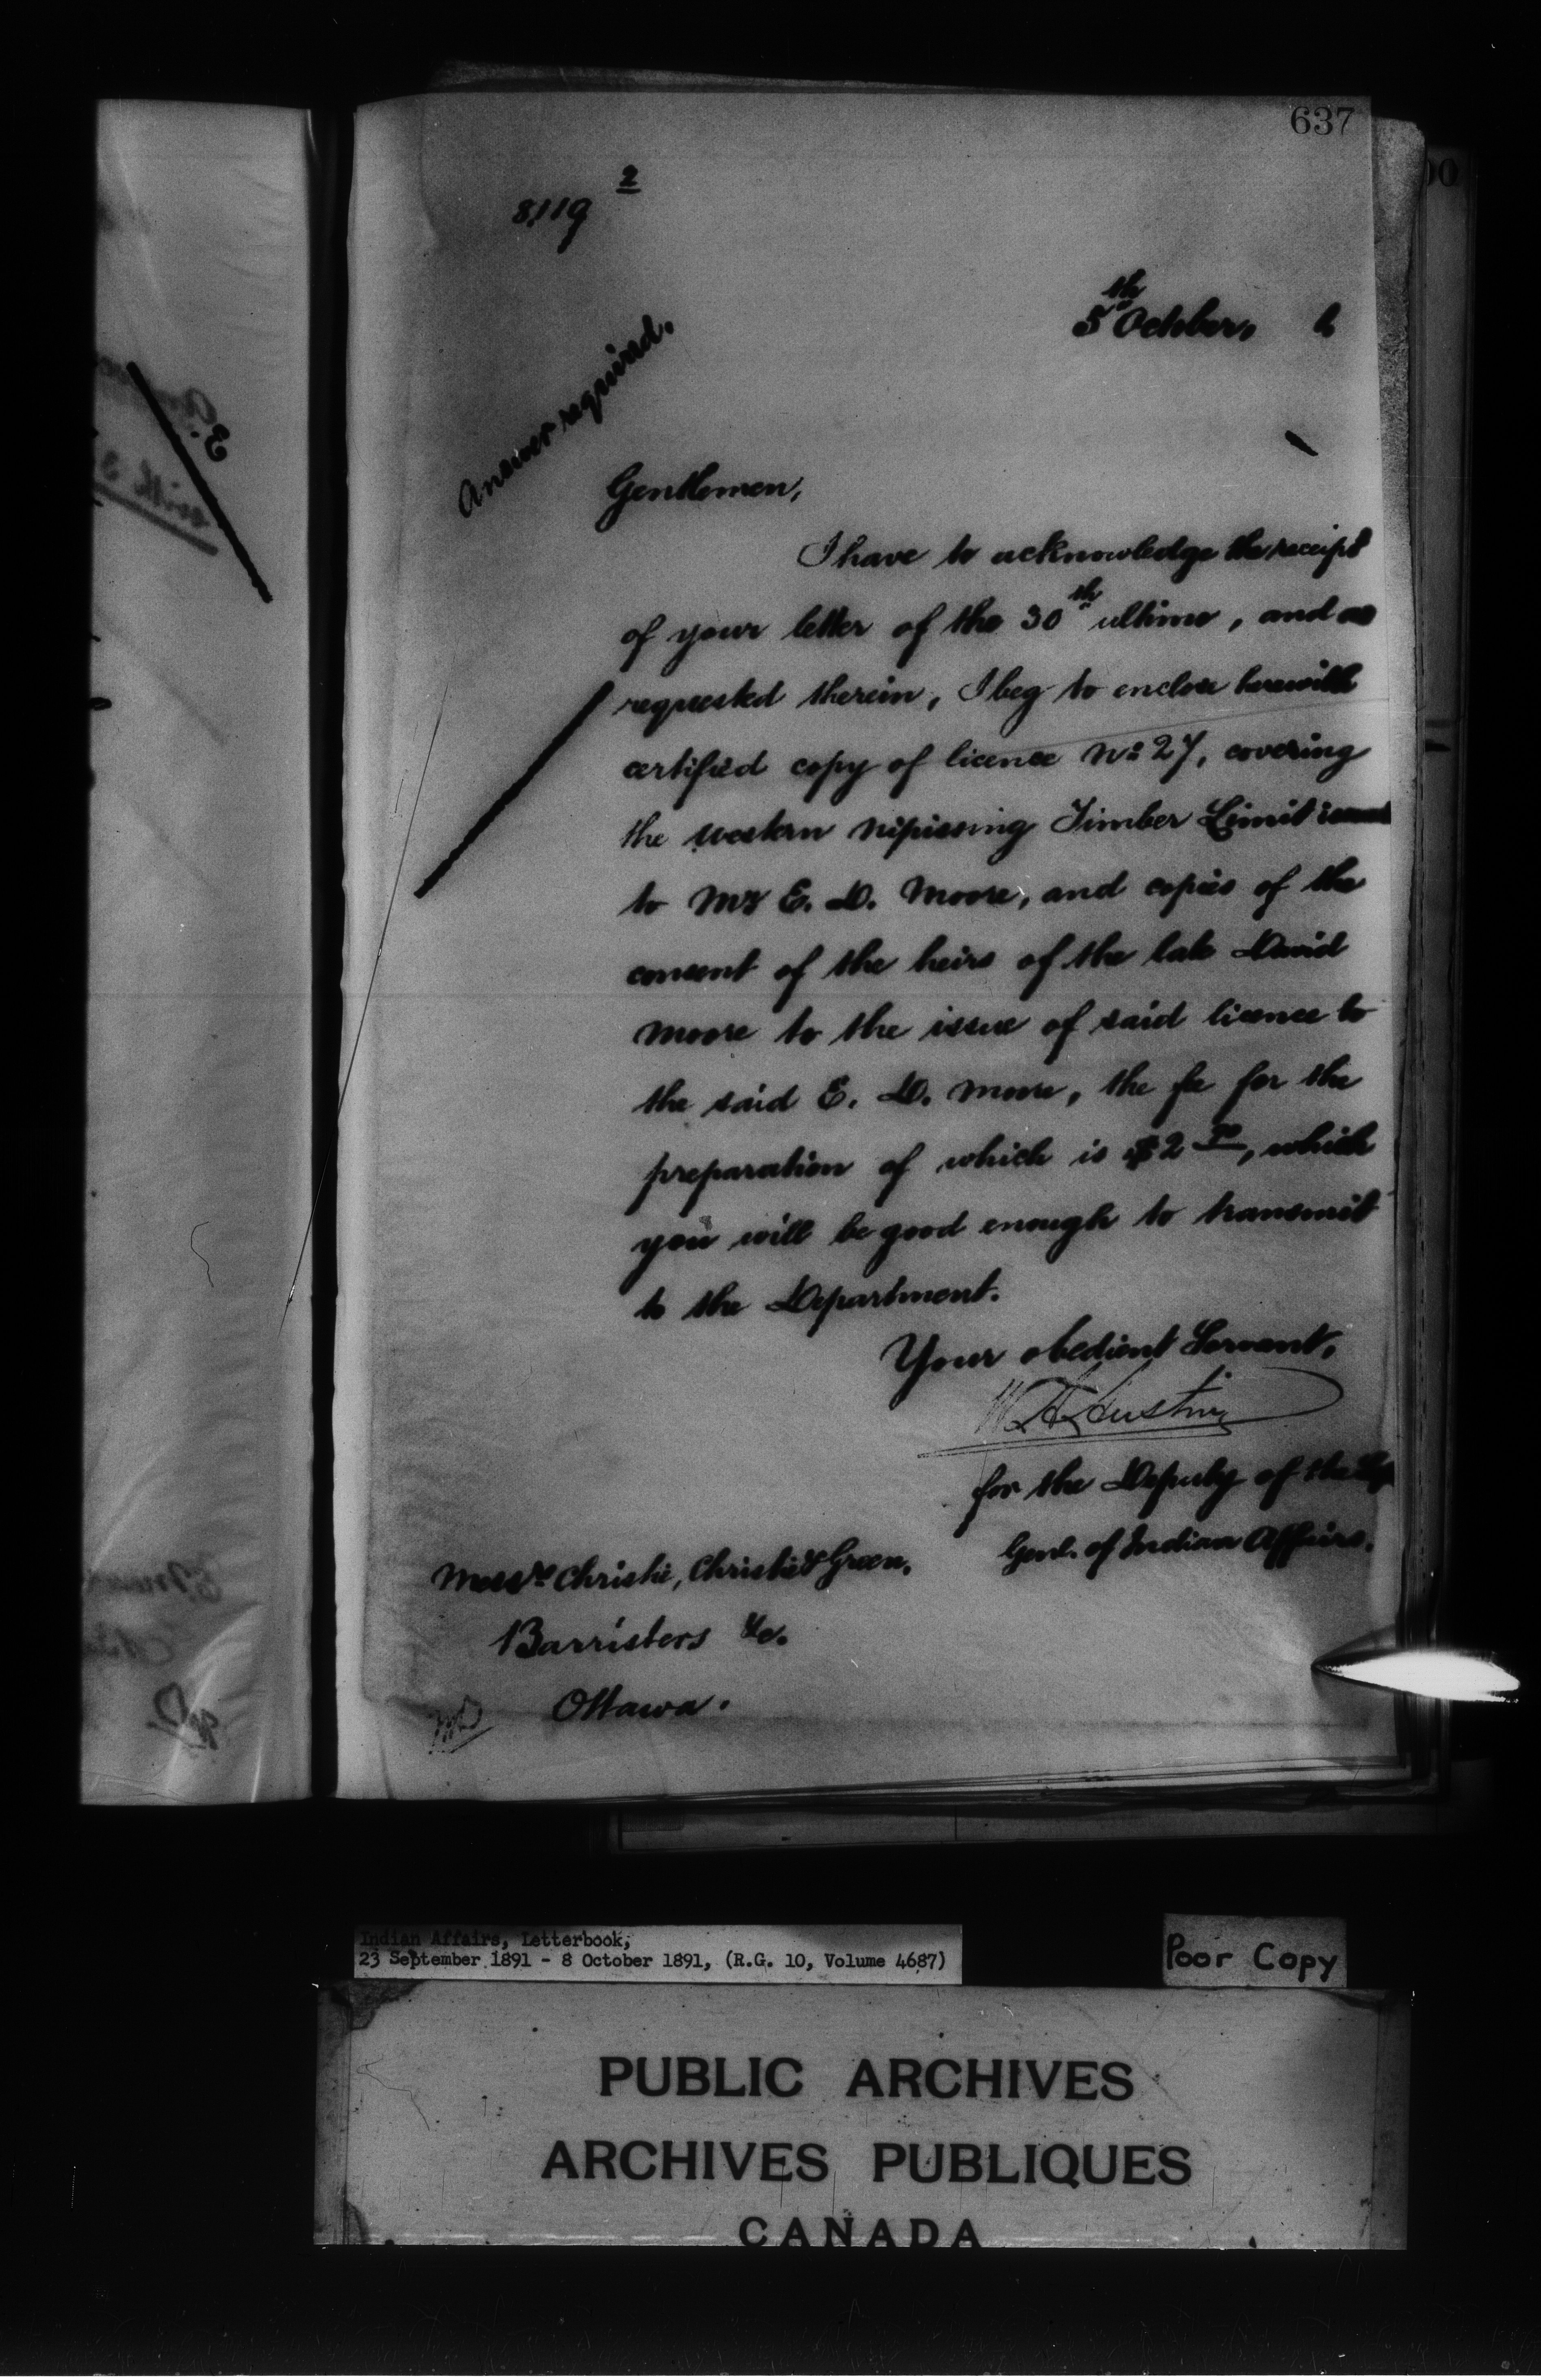 637
8119 2
5th October,
Answer required.
Gentlemen,
I have to acknowledge the receipt
of your letter of the 30th ultimo, and as
requested therein, I beg to enclose herewith
certified copy of licence No 27, covering
the western Nipissing Timber Limit issued
to Mr E. D. Moore, and copies of the
consent of the heirs of the late David
Moore to the issue of said licence to
the said E. D. Moore, the fee for the
preparation of which is $2 50, which
you will be good enough to transmit
to the Department.
Your obedient Servant,
for the Deputy of the
Genl. of Indian Affairs.
Messrs Christie, Christie & Green,
Barristers &c.
Ottawa.
Indian Affairs, Letterbook,
23 September 1891 - 8 October 1891, (R.G. 10, Volume 4687)
Poor Copy
PUBLIC ARCHIVES
ARCHIVES PUBLIQUES
CANADA